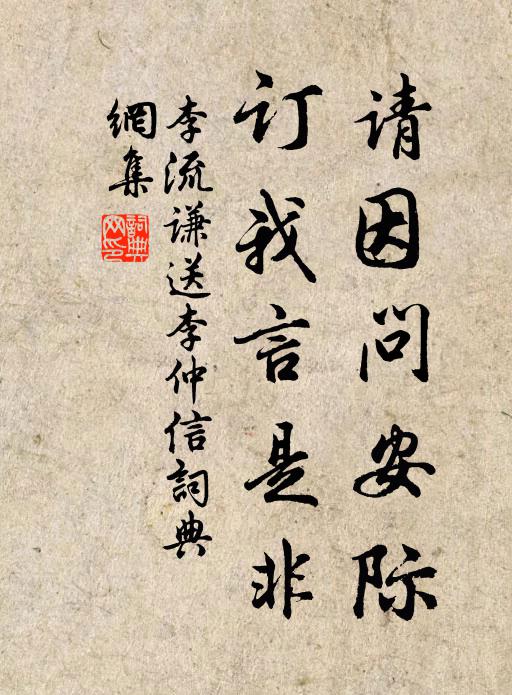 请因问安际
订我言是非
李流谦送李仲信詞典
網集
詞典網印